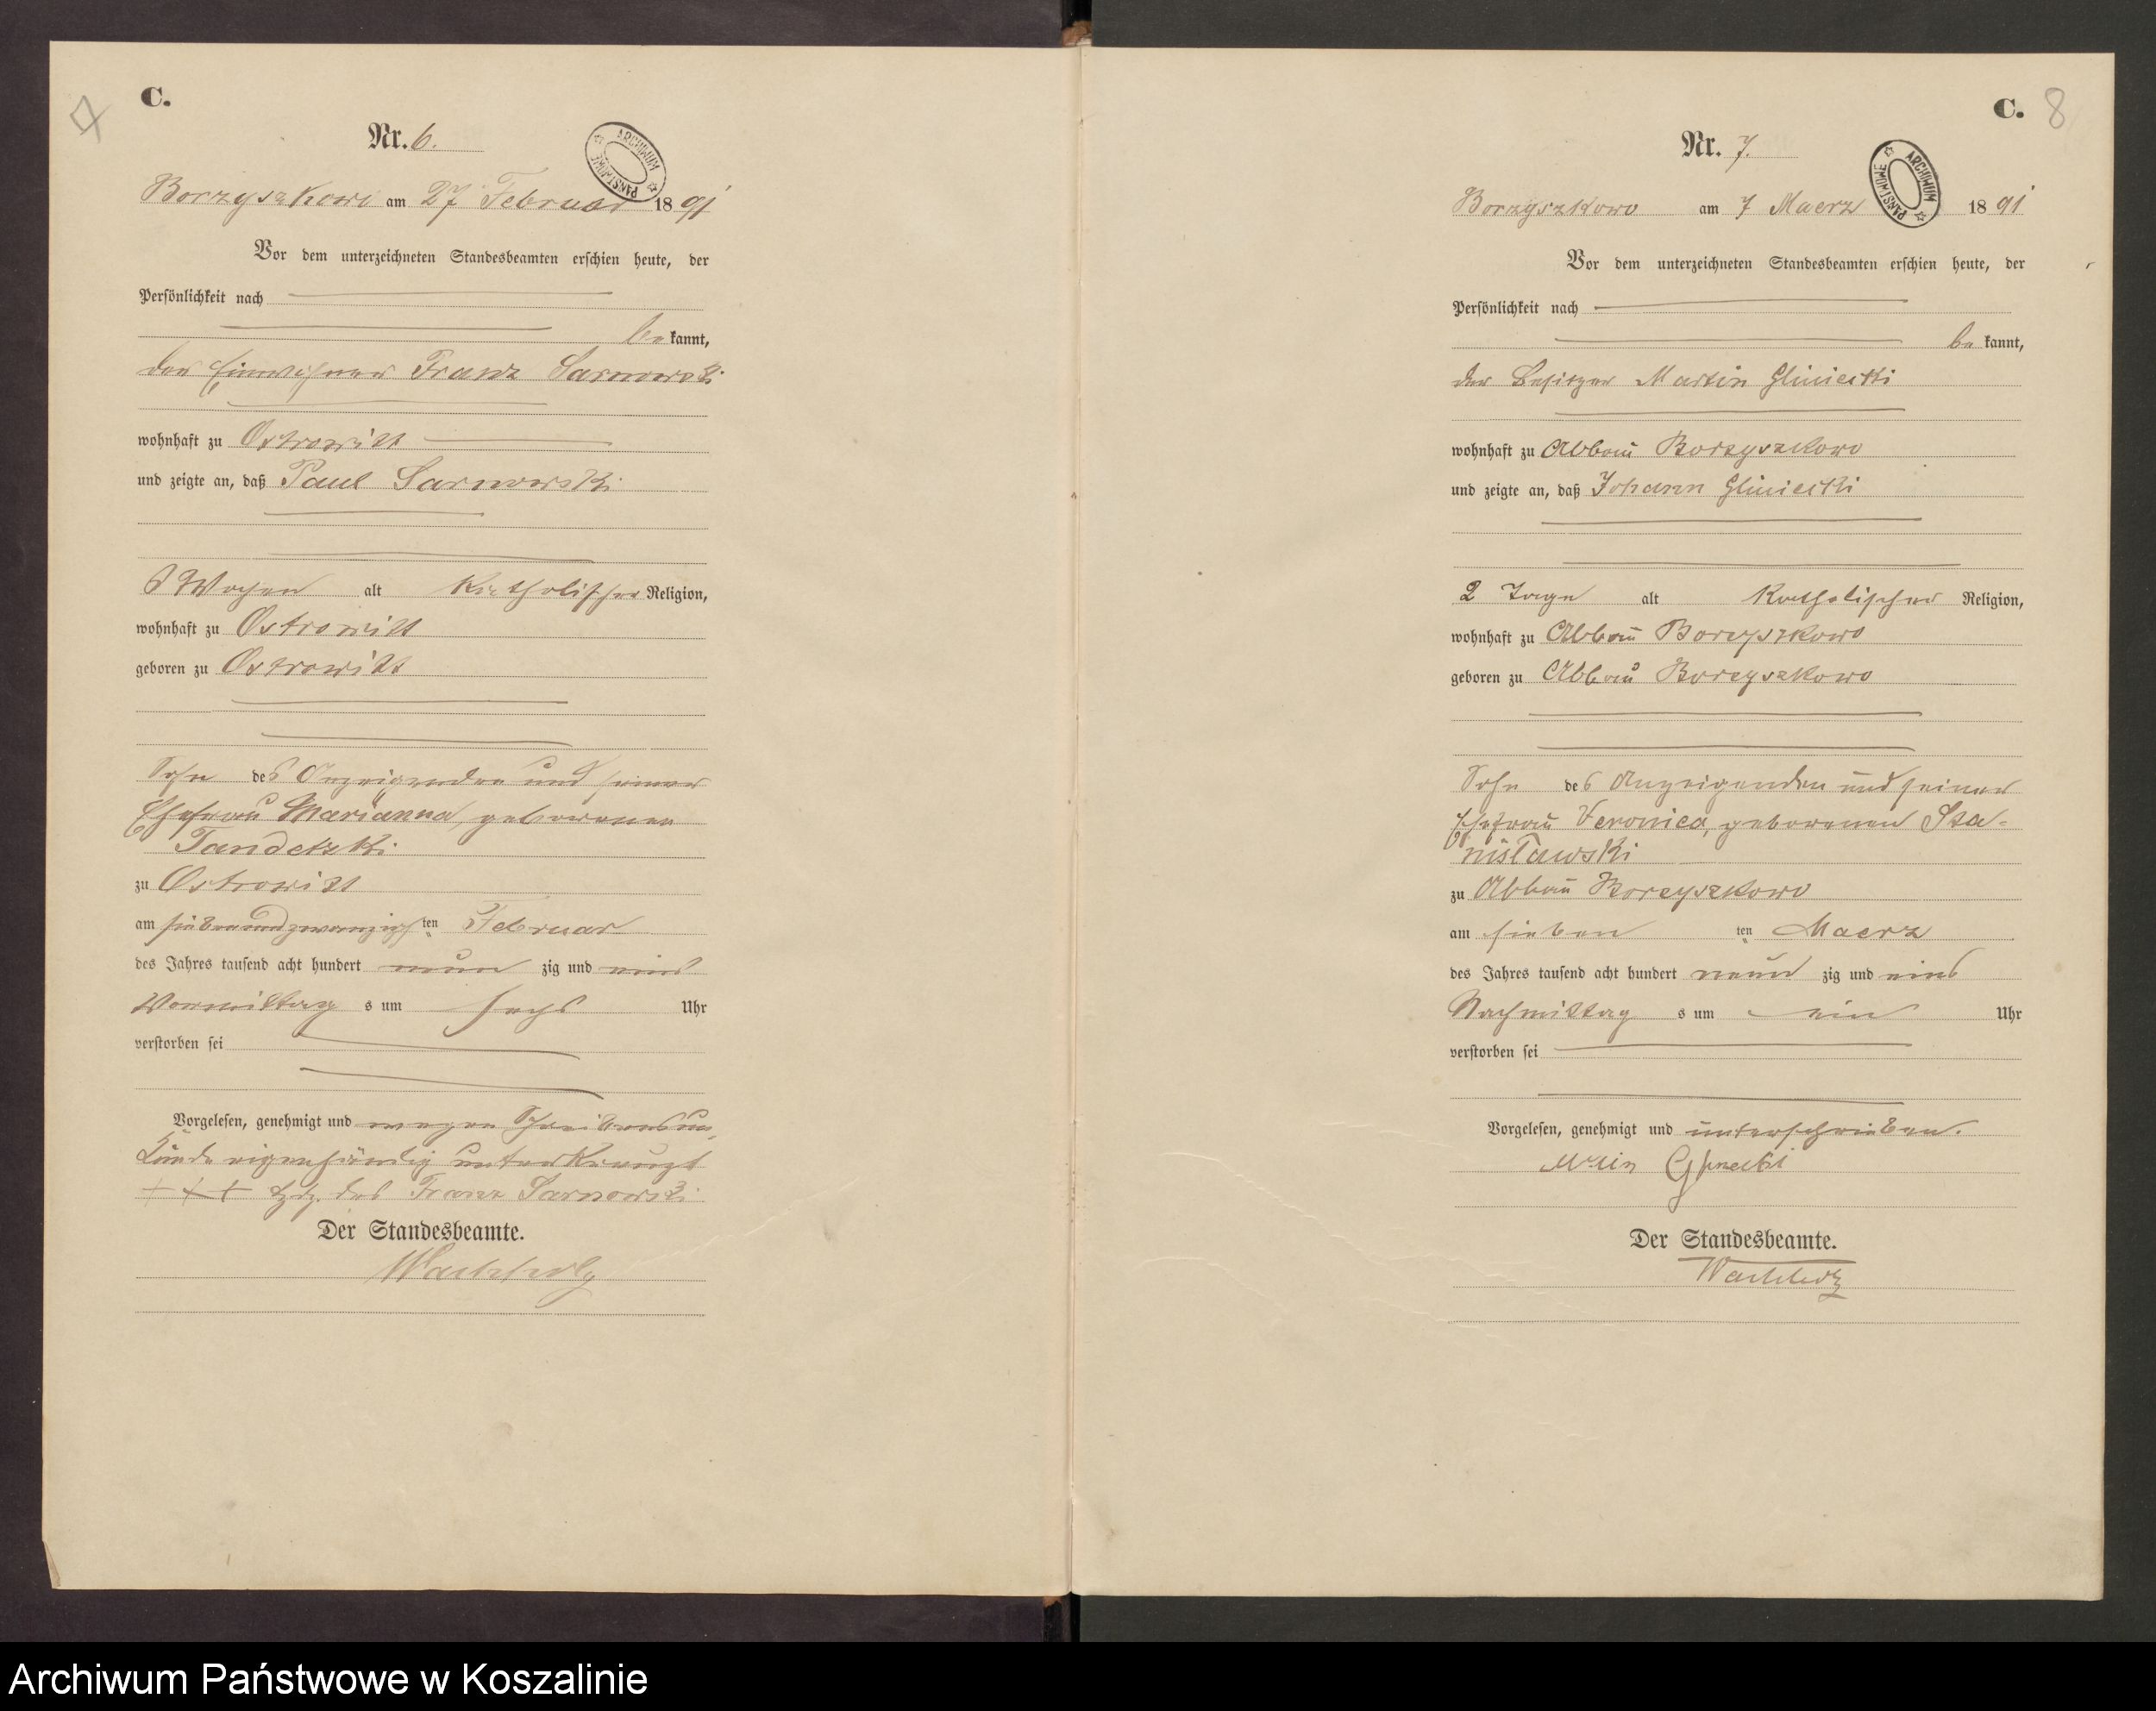 7
C.
Nr. 6.
ARCHIWUM PAŃSTWOWE
Borzyszkowo am 27 Februar 1891
Vor dem unterzeichneten Standesbeamten erschien heute, der
Persönlichkeit nach
bekannt,
der Einwohner Franz Sarnowski
wohnhaft zu Ostrowitt
und zeigte an, daß Paul Sarnowski
Wochen alt katholischer Religion,
wohnhaft zu Ostrowitt
geboren zu Ostrowitt
Sohn des Anzeigenden und seiner
Ehefrau Marianna, geborenen
Tandetzki
zu Ostrowitt
am siebenundzwanzigsten Februar
des Jahres tausend acht hundert neun zig und eins
Vormittags um sechs Uhr
verstorben sei
Vorgelesen, genehmigt und wegen Schreibensun-
kunde eigenhändig unterkreuzt
+++ Hdz. des Franz Sarnowski
Der Standesbeamte.
Wachholz
C. 8
Nr. 7.
ARCHIWUM PAŃSTWOWE
Borzyszkowo am 7 Maerz 1891
Vor dem unterzeichneten Standesbeamten erschien heute, der
Persönlichkeit nach
bekannt,
der Besitzer Martin Gliniecki
wohnhaft zu Abbau Borzyszkowo
und zeigte an, daß Johann Gliniecki
2 Tage alt katholischer Religion,
wohnhaft zu Abbau Borzyszkowo
geboren zu Abbau Borzyszkowo
Sohn des Anzeigenden und seiner
Ehefrau Veronica, geborenen Sta-
nisławski
zu Abbau Borzyszkowo
am siebenten Maerz
des Jahres tausend acht hundert neun zig und eins
Nachmittags um ein Uhr
verstorben sei
Vorgelesen, genehmigt und unterschrieben.
Der Standesbeamte.
Wachholz
Archiwum Państwowe w Koszalinie